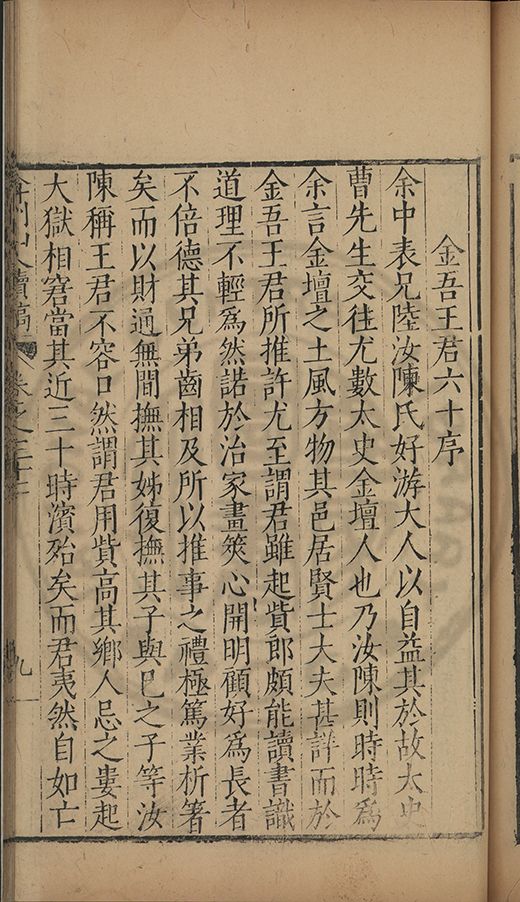 金吾王君六十序
余中表兄陸汝陳氏好游大人以自益其於故太史
曹先生交往尤數太史金壇人也乃汝陳則時時為
余言金壇之土風方物其邑居賢士大夫甚詳而於
金吾王君所推許尤至謂君雖起貲郎頗能讀書識
道理不輕為然諾於治家畫筴心開明顧好為長者
不倍德其兄弟齒相及所以推事之禮極篤業析箸
矣而以財通無間撫其姊復撫其子與巳之子等汝
陳稱王君不容口然謂君用貲高其鄉人忌之婁起
大獄相窘當其近三十時濱殆矣而君夷然自如亡
續稿 卷之三十 九